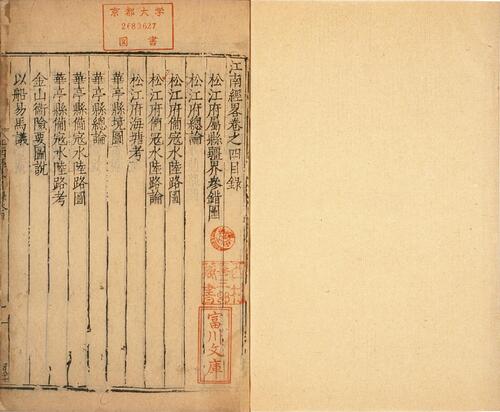 京都大学
2683627
図書
江南經畧卷之四目錄
松江府屬縣疆界參錯圖
松江府總論
松江府備寇水陸路圖
松江府備寇水陸路論
松江府海塘考
華亭縣境圖
華亭縣總論
華亭縣備寇水陸路圖
華亭縣備寇水陸路考
金山衛險要圖說
以船易馬議
富川文庫